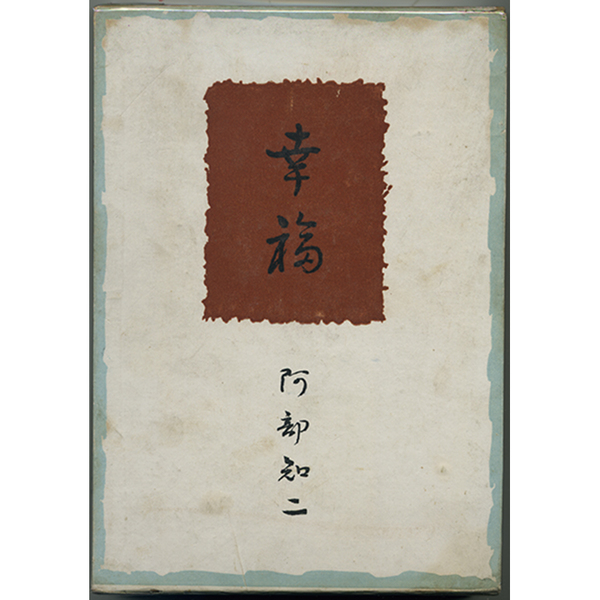 幸福
阿部知二